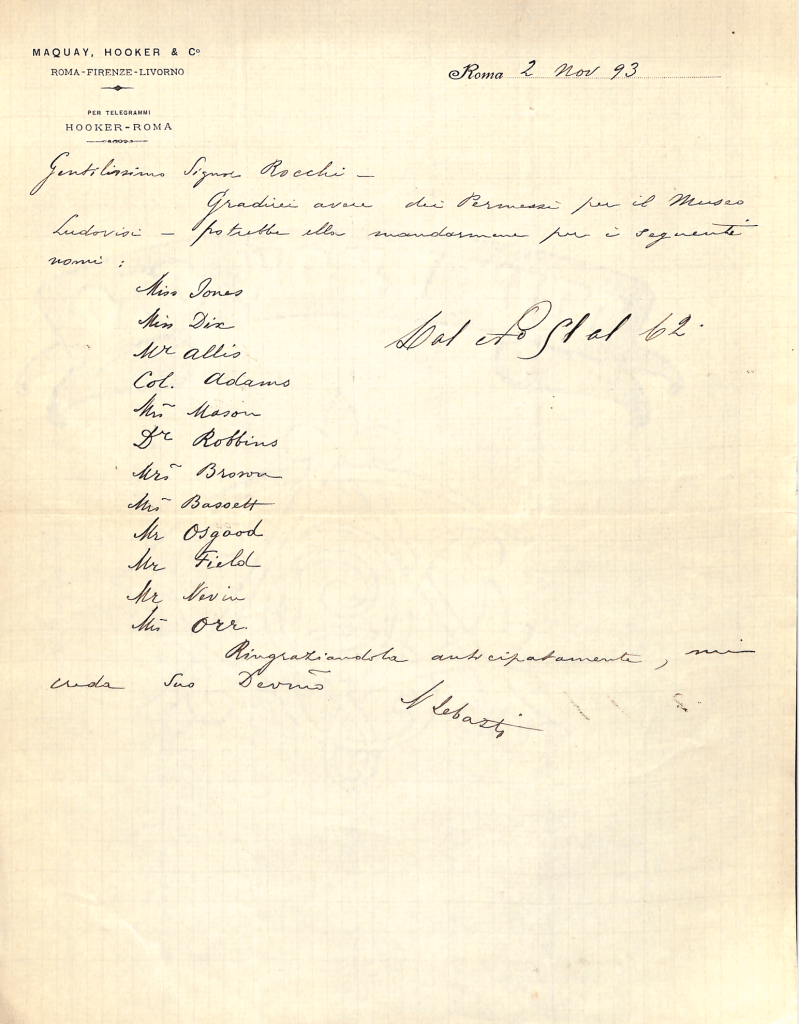 MAQUAY, HOOKER & Cº
ROMA-FIRENZE-LIVORNO
PER TELEGRAMMI
HOOKER-ROMA
Roma 2 Nov 93
Gentilissimo Signor Rocchi –
Gradirei avere dei Permessi per il Museo
Ludovisi – potrebbe ella mandarmene per i seguenti
nomi :
Miss Jones
Miss Dix
Mr Allis
Col. Adams
Mrs Mason
Dr Robbins
Mrs Brown
Mrs Bassett
Mr Osgood
Mr Field
Mr Nevin
Mrs Orr.
Dal No 51 al 62.
Ringraziandola anticipatamente, mi
creda Suo Devmo